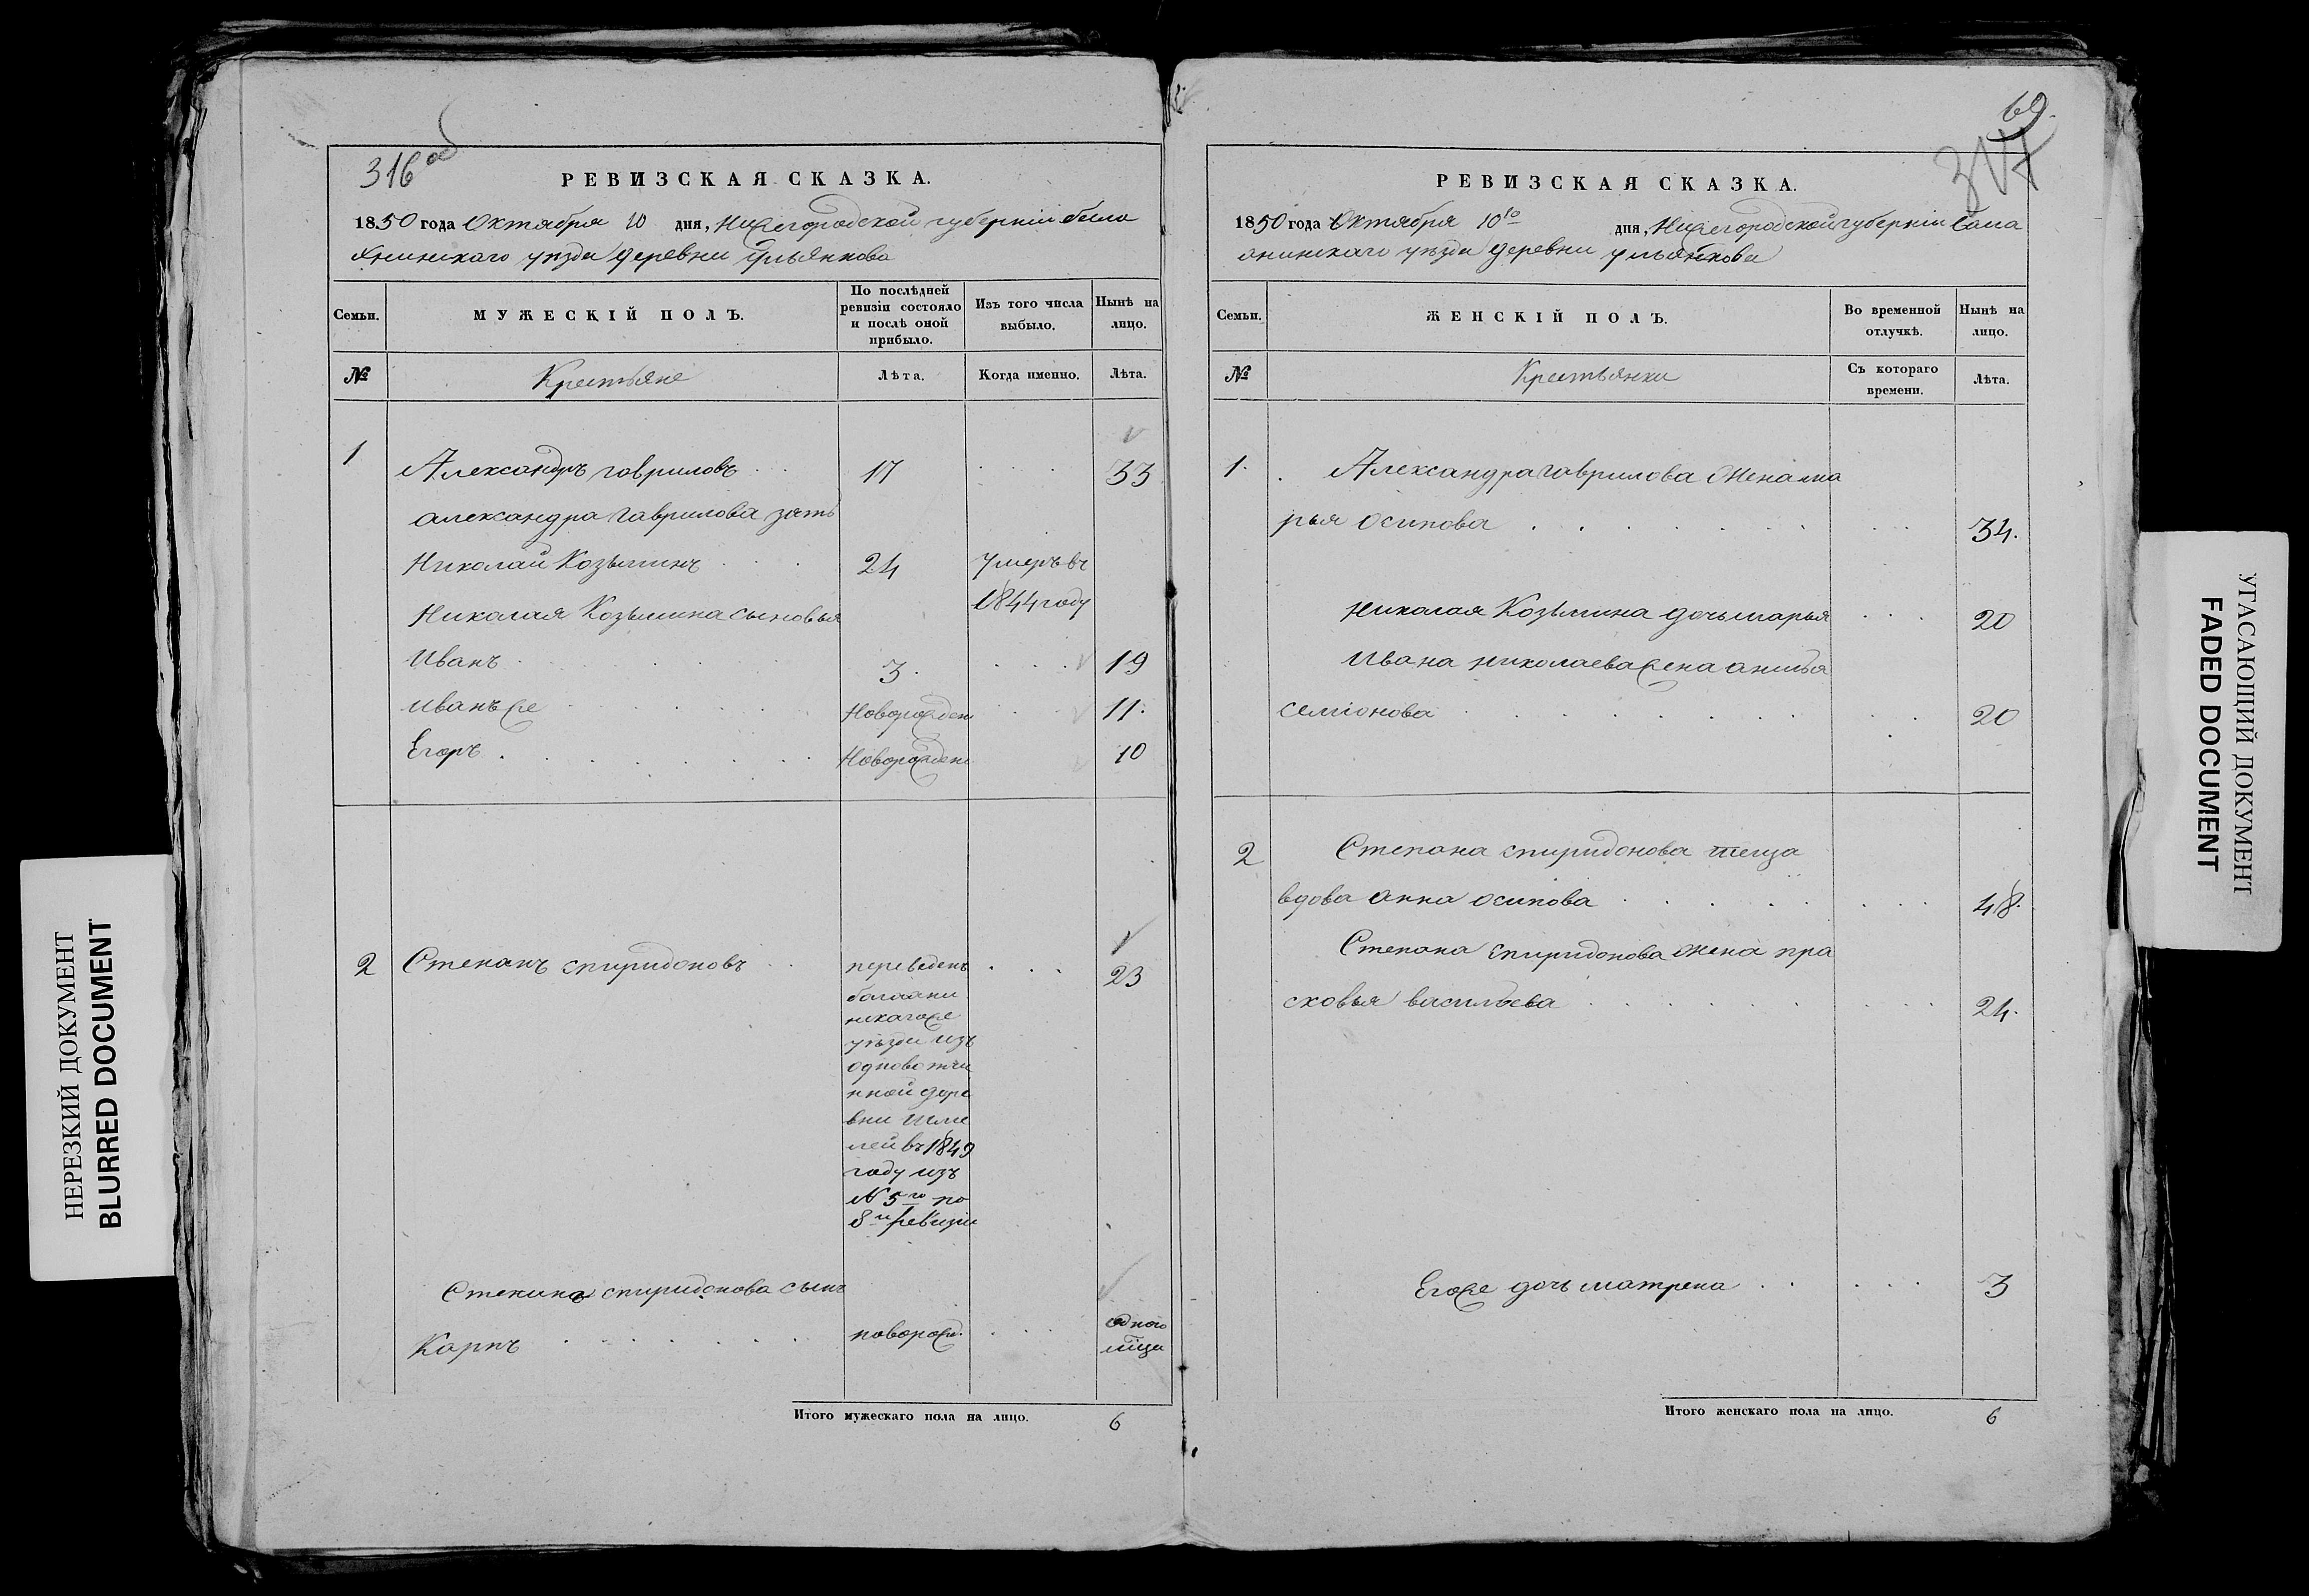 316 об
РЕВИЗСКАЯ СКАЗКА.
1850 года Октября 10 дня, Нижегородской губерніи бала
хнинскаго уѣзда деревни Ульянкова
Семьи.
МУЖЕСКІЙ ПОЛЪ.
По послѣдней ревизіи состояло и послѣ оной прибыло.
Изъ того числа выбыло.
Нынѣ на лицо.
№
Крестьяне
Лѣта.
Когда именно.
Лѣта.
1 Александръ гавриловъ 17 33
александра гаврилова зять
Николай Козьминъ 24 Умеръ въ
1844 году
Николая Козьмина сыновья
Иванъ 3 19
иванъ же Новорожден 11.
Егоръ Новорожден 10
2 Степанъ спиридоновъ переведенъ 23
уѣзда изъ
одновотчи
нной дере
вни
въ 1849
году изъ
N 5го по
8й ревизіи
Степана спиридонова сынъ
Карпъ новорож. одного
мѣца
Итого мужескаго пола на лицо. 6
69.
317
РЕВИЗСКАЯ СКАЗКА.
1850 года Октября 10го дня, Нижегородской губерніи бала
хнинскаго уѣзда деревни Ульянкова
Семьи.
ЖЕНСКІЙ ПОЛЪ.
Во временной отлучкѣ.
Нынѣ на лицо.
№
Крестьянки
Съ котораго времени.
Лѣта.
1. Александра гаврилова жена ма
рья осипова 34.
николая Козьмина дочь марья 20
ивана николаева жена
семионова 20
2 Степана спиридонова теща
вдова анна осипова 48.
Степана спиридонова жена пра
сковья васильева 24.
Его же дочь матрена 3
Итого женскаго пола на лицо. 6
НЕРЕЗКИЙ ДОКУМЕНТ
BLURRED DOCUMENT
УГАСАЮЩИЙ ДОКУМЕНТ
FADED DOCUMENT